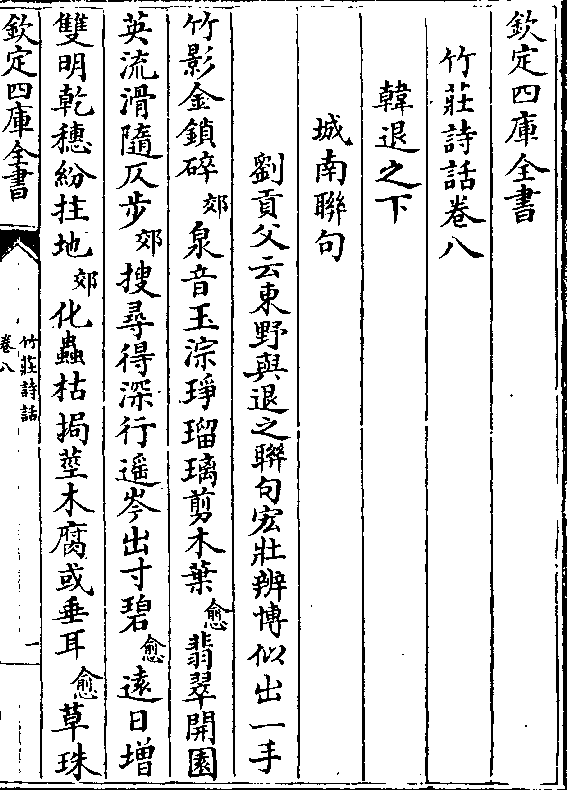 欽定四庫全書
竹莊詩話卷八
韓退之下
城南聯句
劉貢父云東野與退之聯句宏壯辨博似出一手
竹影金鎖碎郊泉音玉淙琤瑠璃剪木葉愈翡翠開園
英流滑隨仄步郊搜尋得深行遥岑出寸碧愈遠日增
雙明乾穗紛拄地郊化蟲枯挶莖木腐或垂耳愈草珠
欽定四庫全書
竹莊詩話
卷八
一